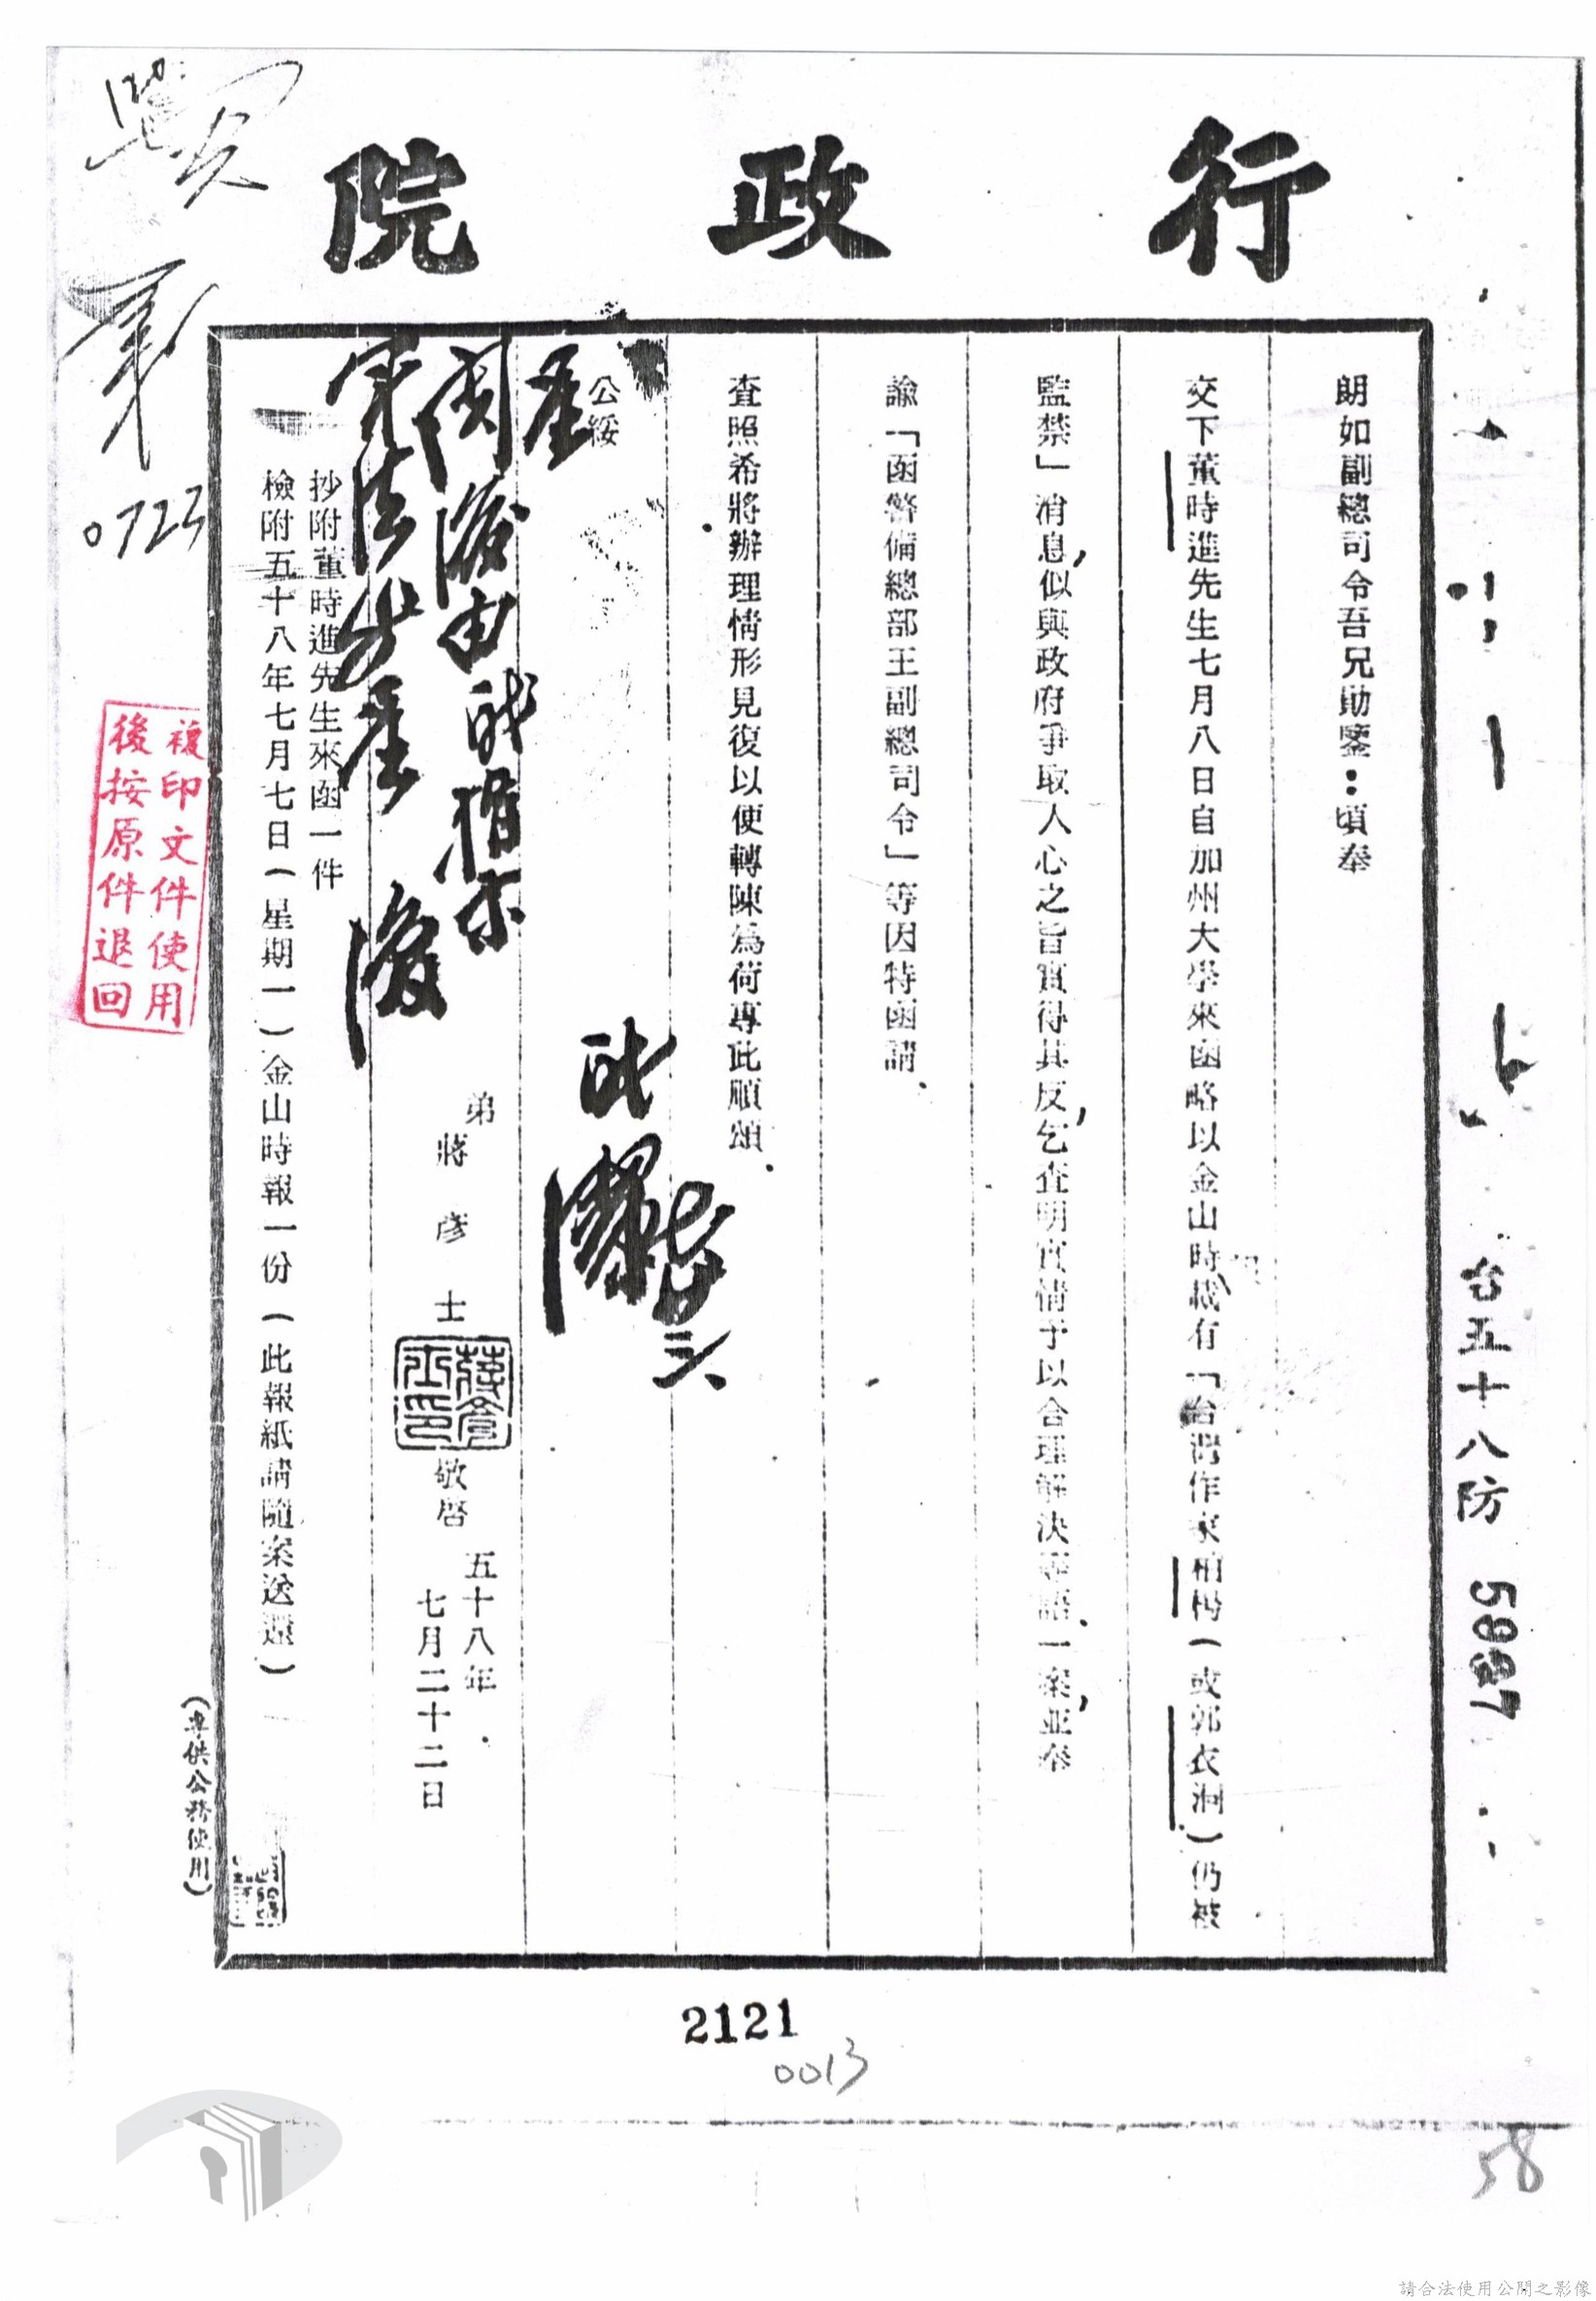 行政院
台五十八防 5987
朗如副總司令吾兄勛鑒：頃奉
交下董時進先生七月八日自加州大學來函略以金山時載有「台灣作家柏楊（或郭衣洞）仍被
監禁」消息，似與政府爭取人心之旨實得其反，乞查明實情予以合理解決等語，一案，並奉
諭「函警備總部王副總司令」等因特函請
查照希將辦理情形見復以便轉陳為荷專此順頌
公綏
弟蔣彥士
敬啓
五十八年
七月二十二日
抄附董時進先生來函一件
檢附五十八年七月七日（星期一）金山時報一份（此報紙請隨案送還）
（專供公務使用）
0723
複印文件使用
後按原件退回
2121
0013
58
請合法使用公開之影像